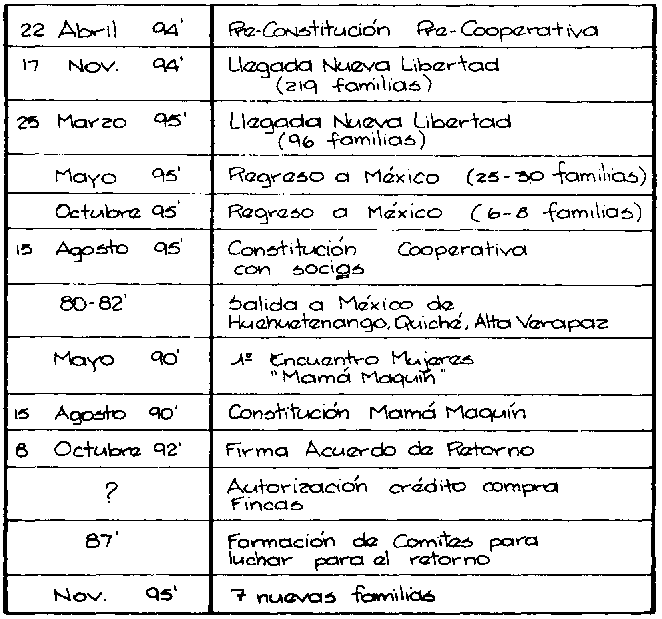 22 Abril 94' Pre-Constitución Pre-Cooperativa
17 Nov. 94' Llegada Nueva Libertad
(219 familias)
25 Marzo 95' Llegada Nueva Libertad
(96 familias)
Mayo 95' Regreso a México (25-30 familias)
Octubre 95' Regreso a México (6-8 familias)
15 Agosto 95' Constitución Cooperativa
con socias
80-82' Salida a México de
Huehuetenango, Quiché, Alta Verapaz
Mayo 90' 1º Encuentro Mujeres
"Mamá Maquín"
15 Agosto 90' Constitución Mamá Maquín
8 Octubre 92' Firma Acuerdo de Retorno
? Autorización crédito compra
Fincas
87' Formación de Comites para
luchar para el retorno
Nov. 95' 7 nuevas familias